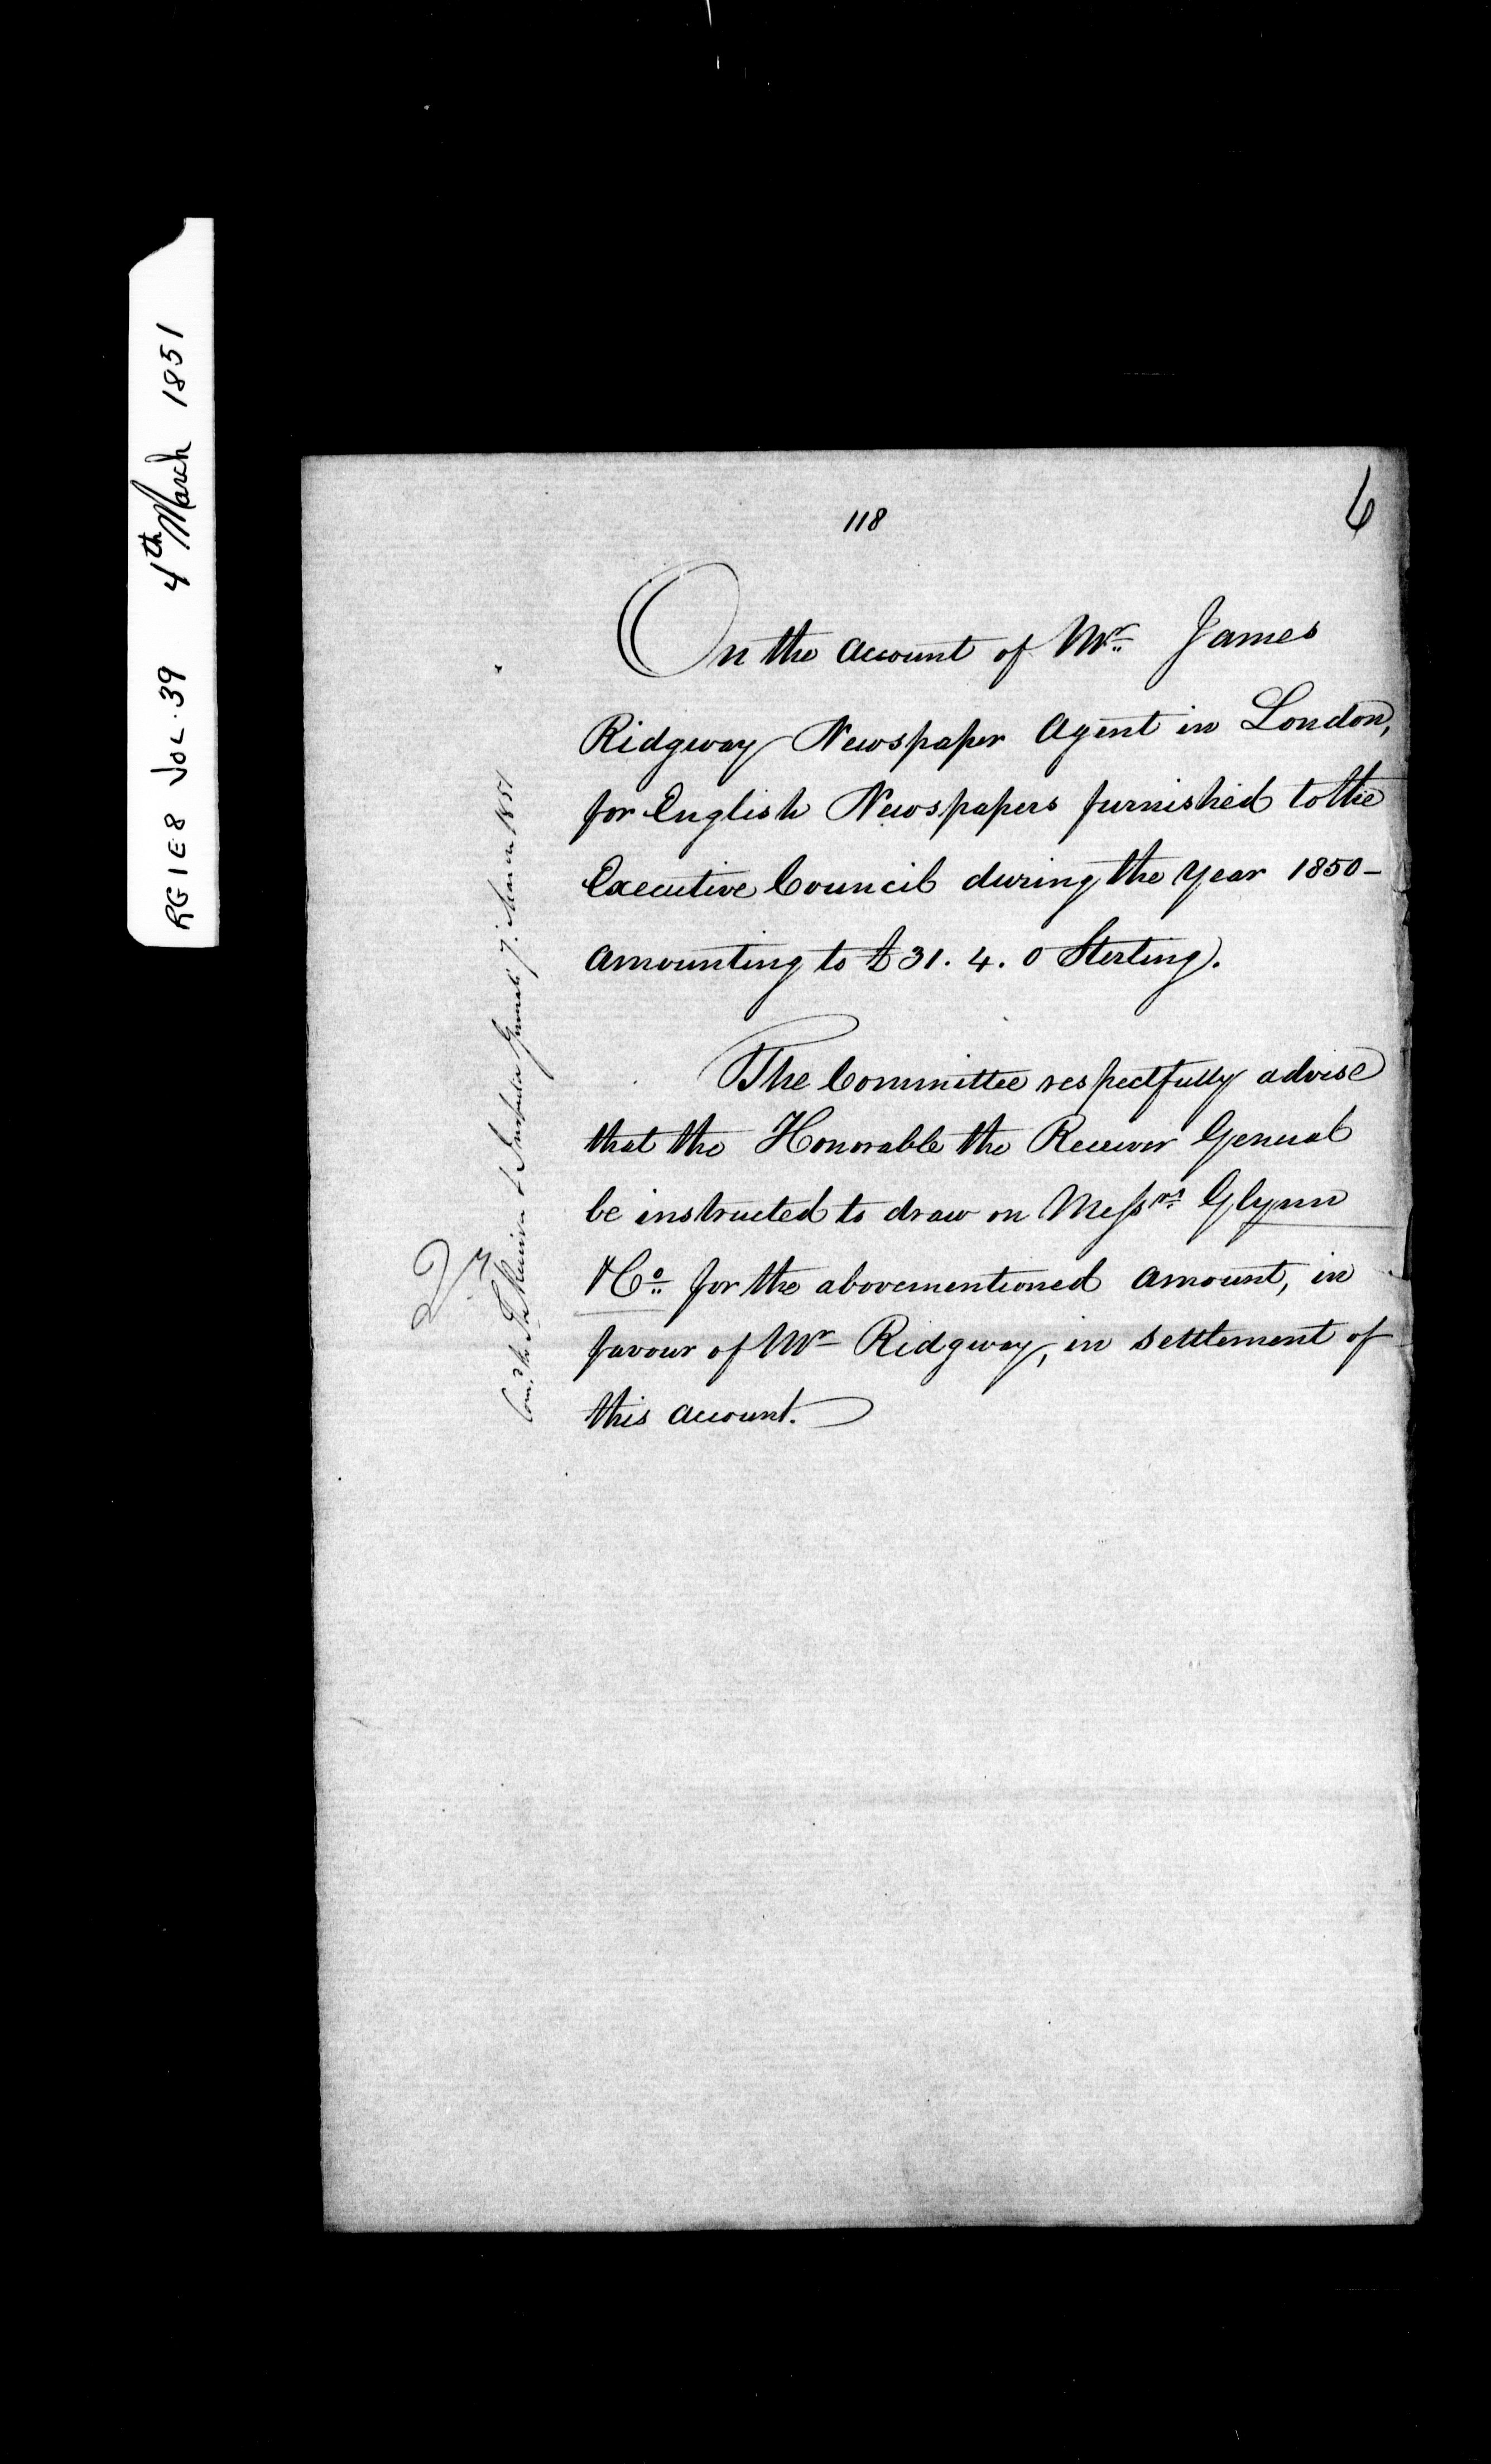 RG1E8 VOL. 39 4th March 1851
118
6
On the account of Mr. James
Ridgway Newspaper Agent in London,
for English Newspapers furnished to the
Executive Council during the year 1850 –
amounting to £31. 4. 0 Sterling.
The Committee respectfully advise
that the Honorable the Receiver General
be instructed to draw on Messrs. Glynn
& Co. for the abovementioned amount, in
favour of Mr Ridgway, in settlement of
this account.
Com.d to The Receiver & Inspector Generals 7. March 1851